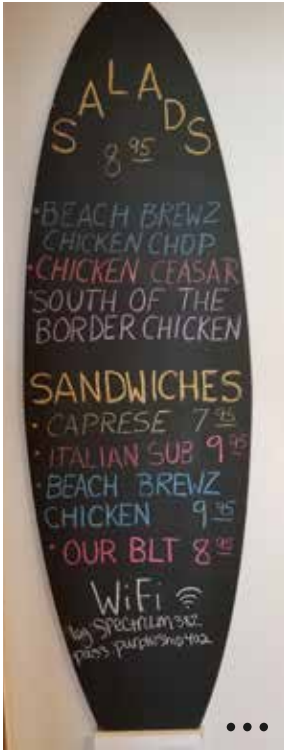 SALADS
8 95
• BEACH BREWZ
CHICKEN CHOP
• CHICKEN CEASAR
• SOUTH OF THE
BORDER CHICKEN
SANDWICHES
• CAPRESE 7 95
• ITALIAN SUB 9 95
• BEACH BREWZ
CHICKEN 9 95
• OUR BLT 8 95
WiFi
pass: